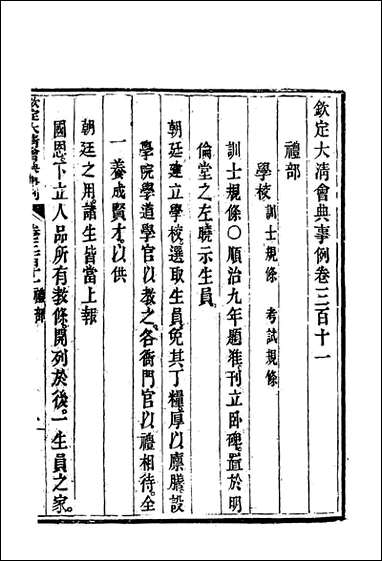 欽定大清會典事例卷三百十一
禮部
學校訓士規條 考試規條
訓士規條〇順治九年題准。刊立臥碑。置於明
倫堂之左。曉示生員。
朝廷建立學校。選取生員。免其丁糧。厚以廩膳。設
學院學道學官以教之。各衙門官以禮相待。全
一養成賢才。以供
朝廷之用。諸生皆當上報
國恩。下立人品。所有教條。開列於後。一生員之家。
欽定大清會典事例 卷三百十一 禮部